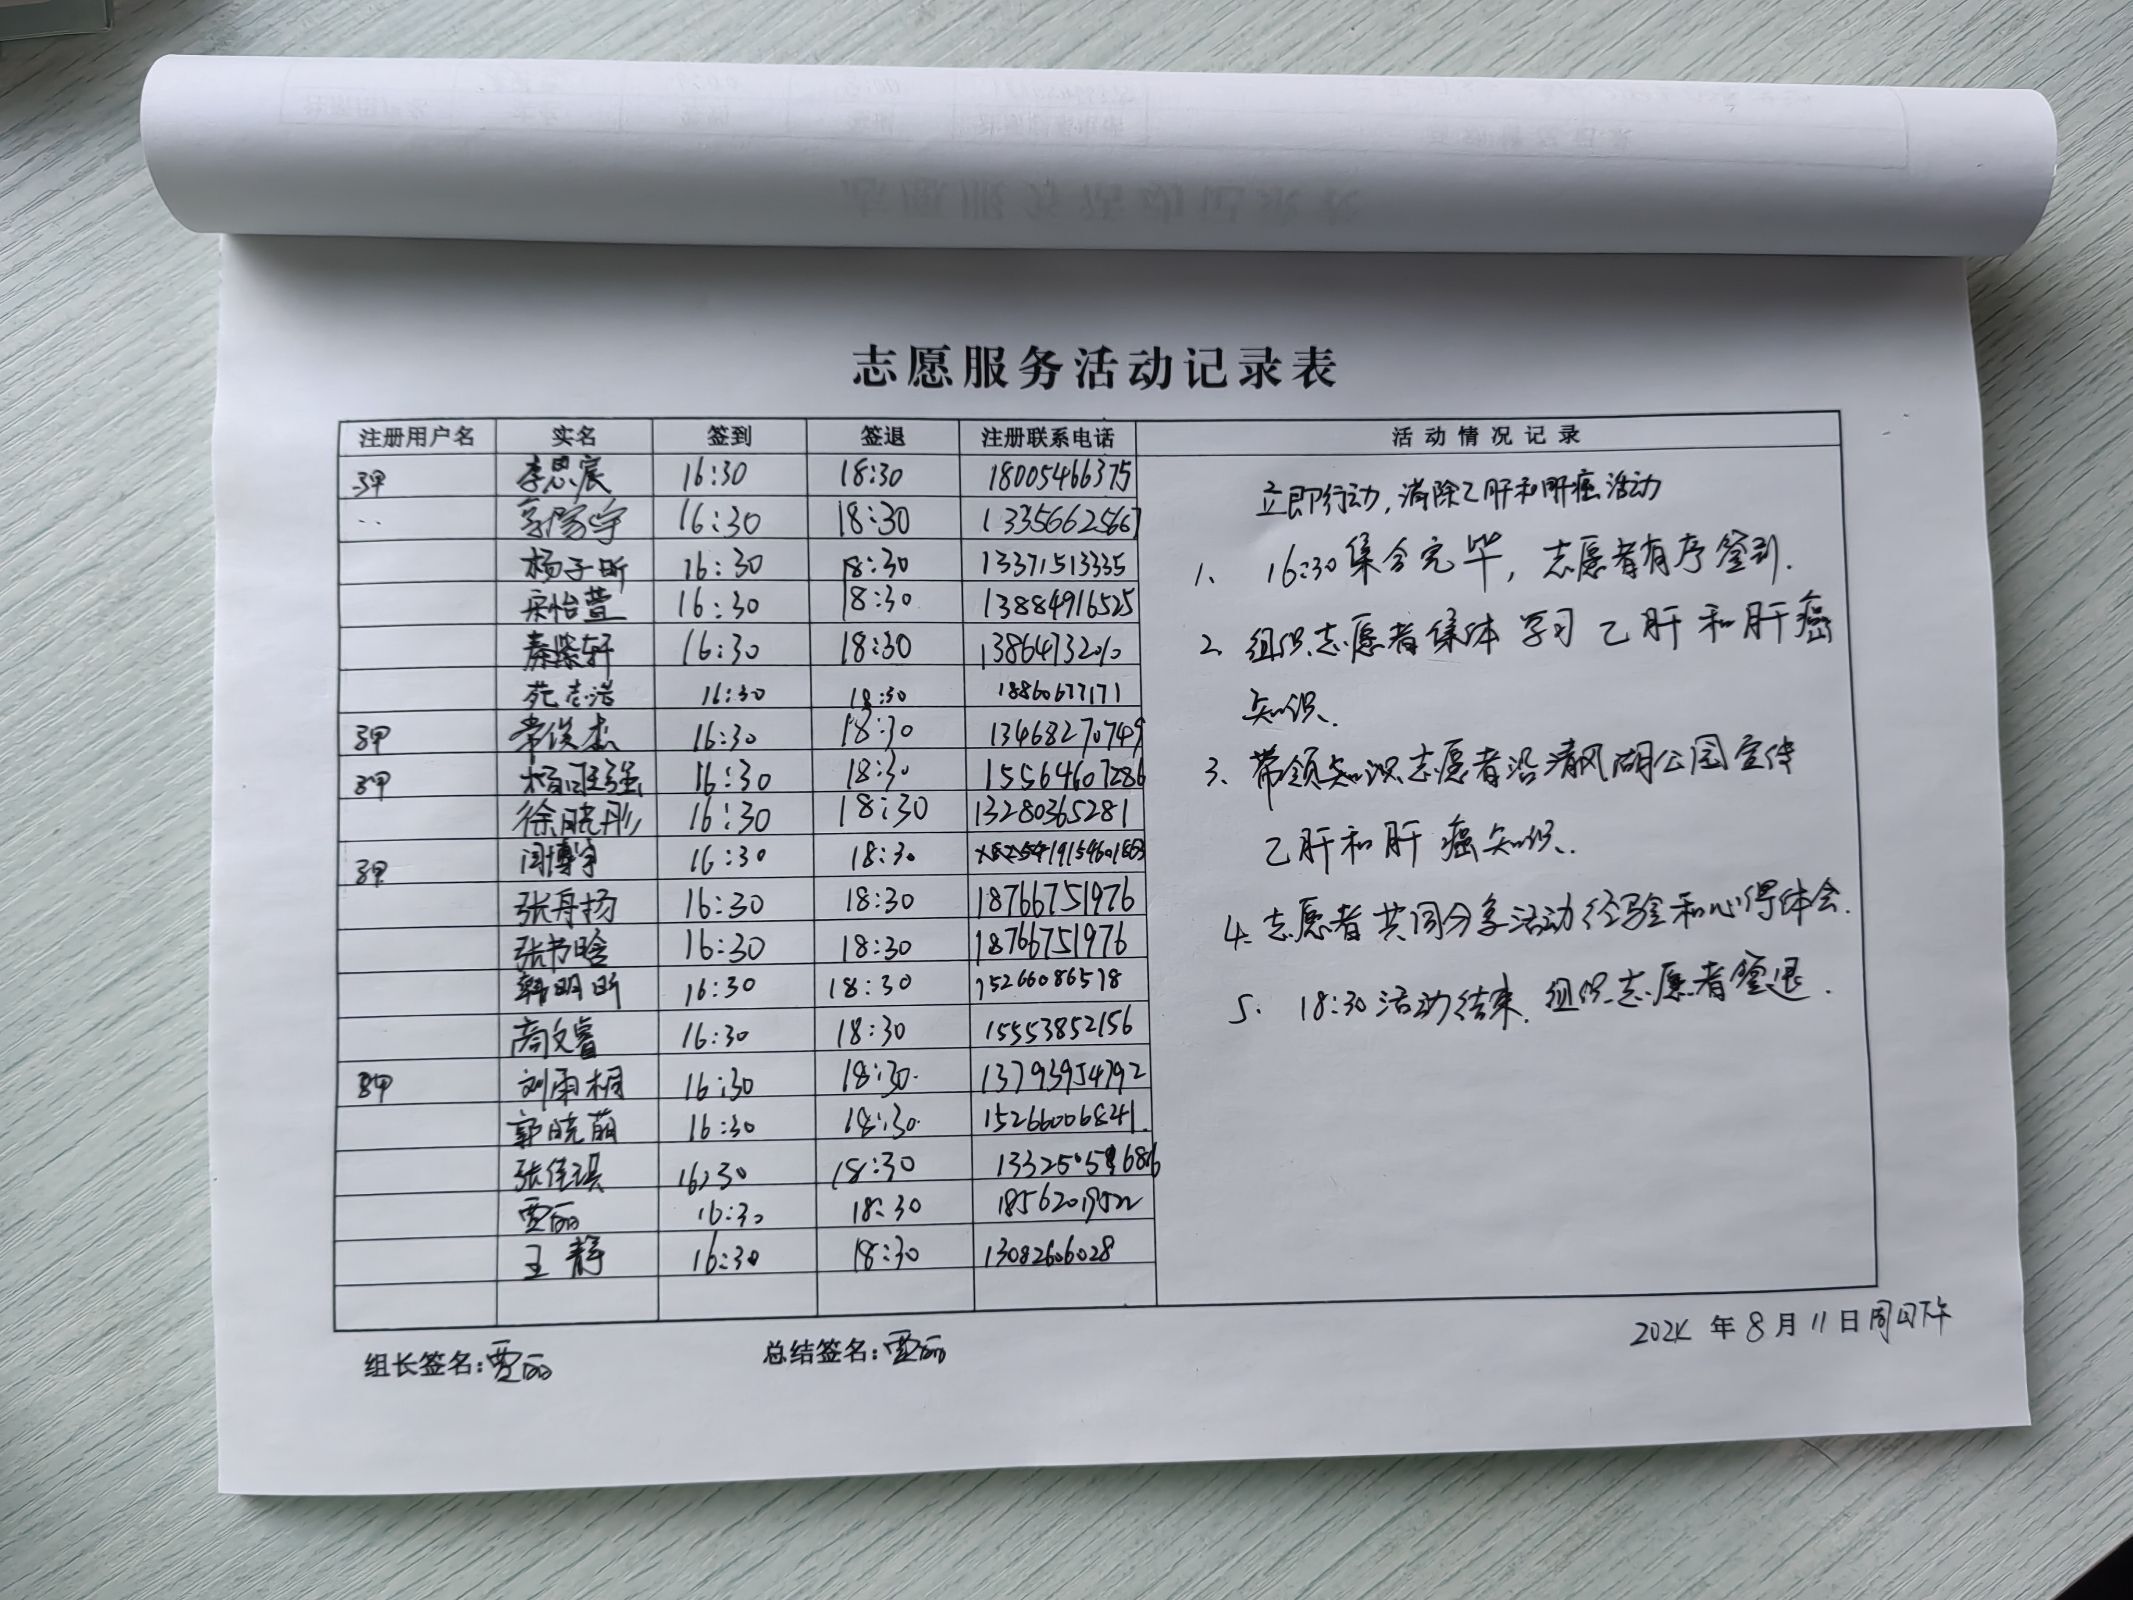 志愿服务活动记录表
注册用户名 实名 签到 签退 注册联系电话 活动情况记录
李思宸 16:30 18:30 18005466375
16:30 18:30 13356625667
杨子昕 16:30 18:30 13371513335
宋怡萱 16:30 18:30 13884916525
秦紫轩 16:30 18:30
苑志浩 16:30 18:30 18860677171
常俊杰 16:30 18:30 13468270749
16:30 18:30 15564607286
徐晓彤 16:30 18:30 13280365281
闫博宇 16:30 18:30
张舟扬 16:30 18:30 18766751976
张书晗 16:30 18:30 18766751976
韩明昕 16:30 18:30 15266086518
高文睿 16:30 18:30 15553852156
刘雨桐 16:30 18:30 13793954792
郭晓萌 16:30 18:30 15266006841
张佳琪 16:30 18:30
贾丽 16:30 18:30
王静 16:30 18:30 13082606028
立即行动,消除乙肝和肝癌活动
1、16:30集合完毕,志愿者有序签到.
2、组织志愿者集体学习乙肝和肝癌
知识.
3、带领知识志愿者沿清风湖公园宣传
乙肝和肝癌知识.
4.志愿者共同分享活动经验和心得体会.
5、18:30活动结束.组织志愿者签退.
组长签名:贾丽 总结签名:贾丽 2024年8月11日周日下午